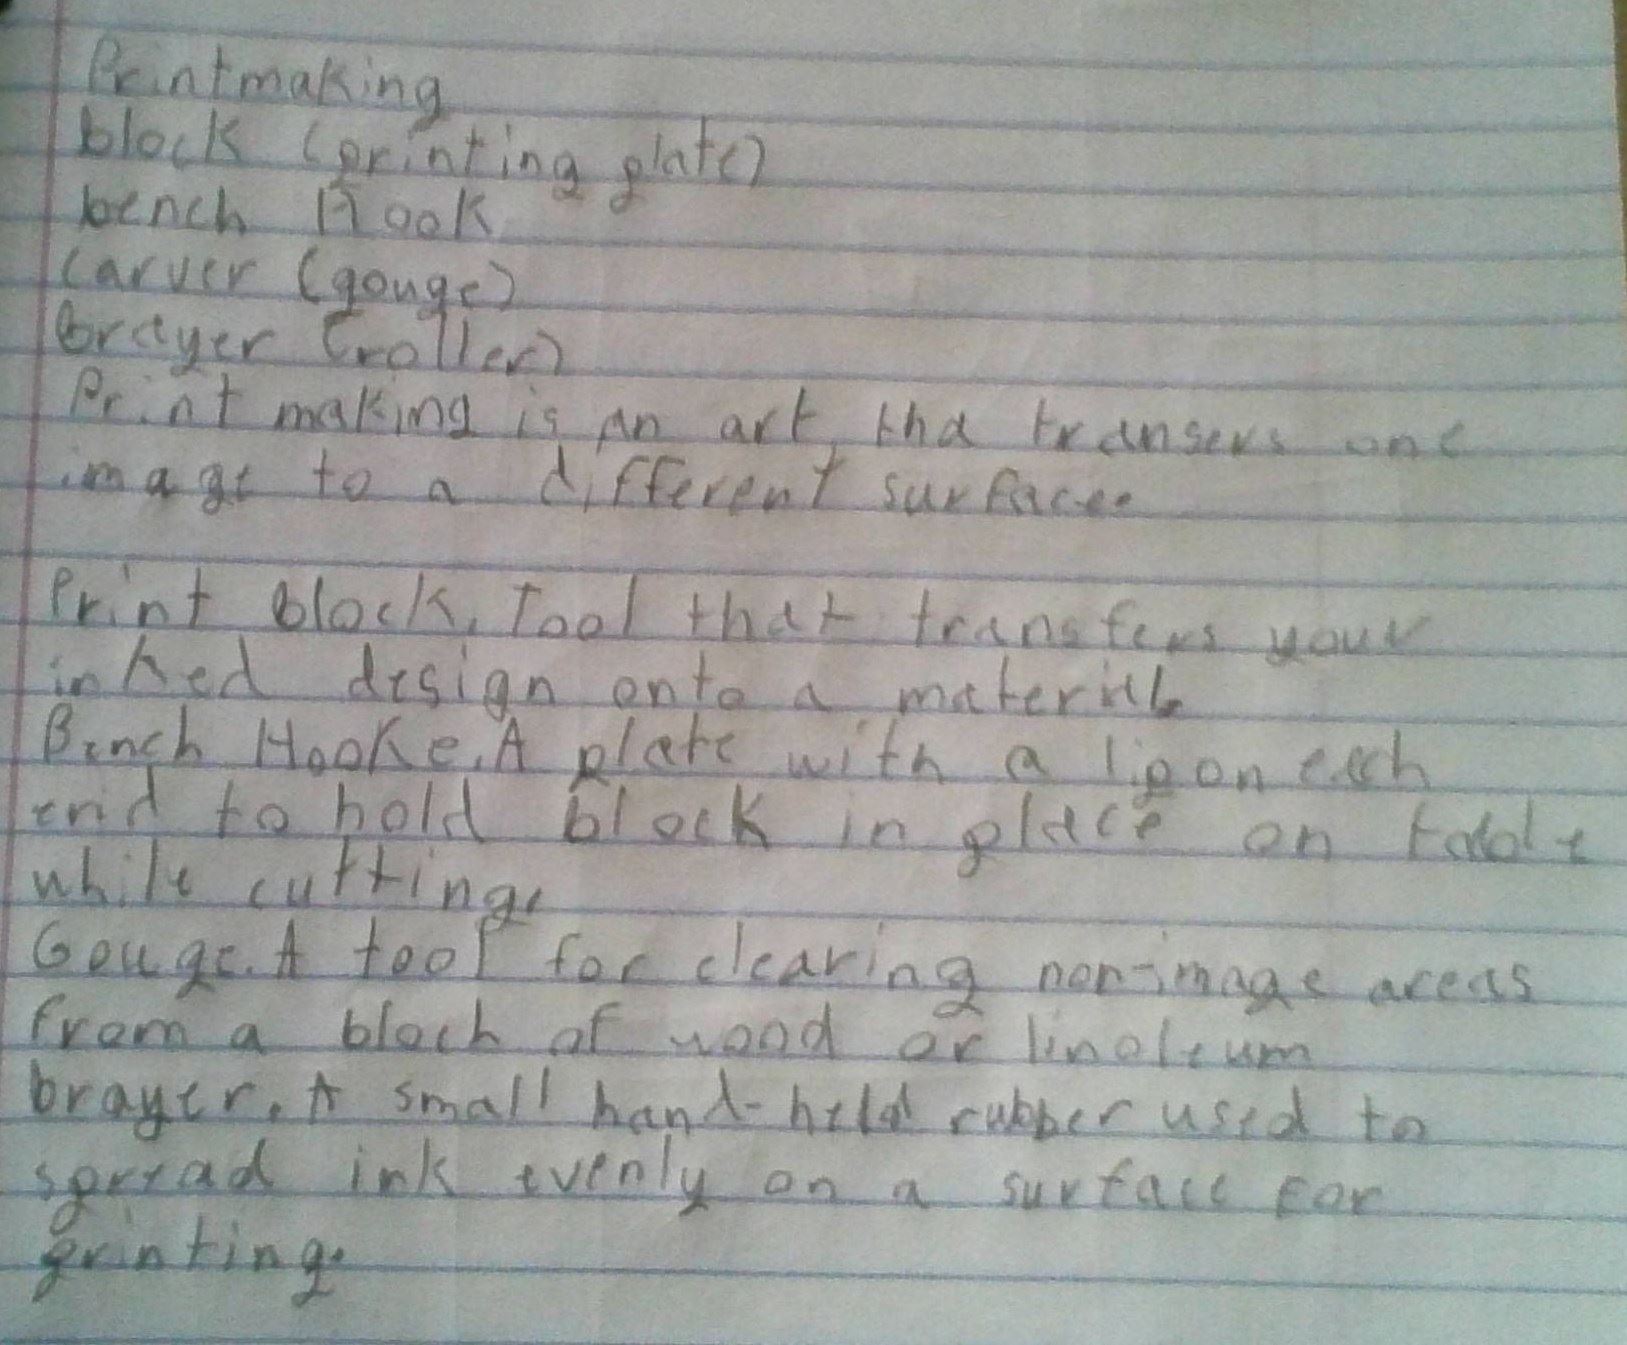 Printmaking
block (printing plate)
bench Hook
carver (gouge)
Brayer (roller)
Print making is an art tha transers one
image to a different surface.
Print block. Tool that transfers your
inked design onto a material.
Bench Hooke. A plate with a lip on each
end to hold block in place on table
while cutting.
Gouge. A tool for clearing non-image areas
from a block of wood or linoleum
brayer. A small hand-held rubber used to
spread ink evenly on a surface for
printing.